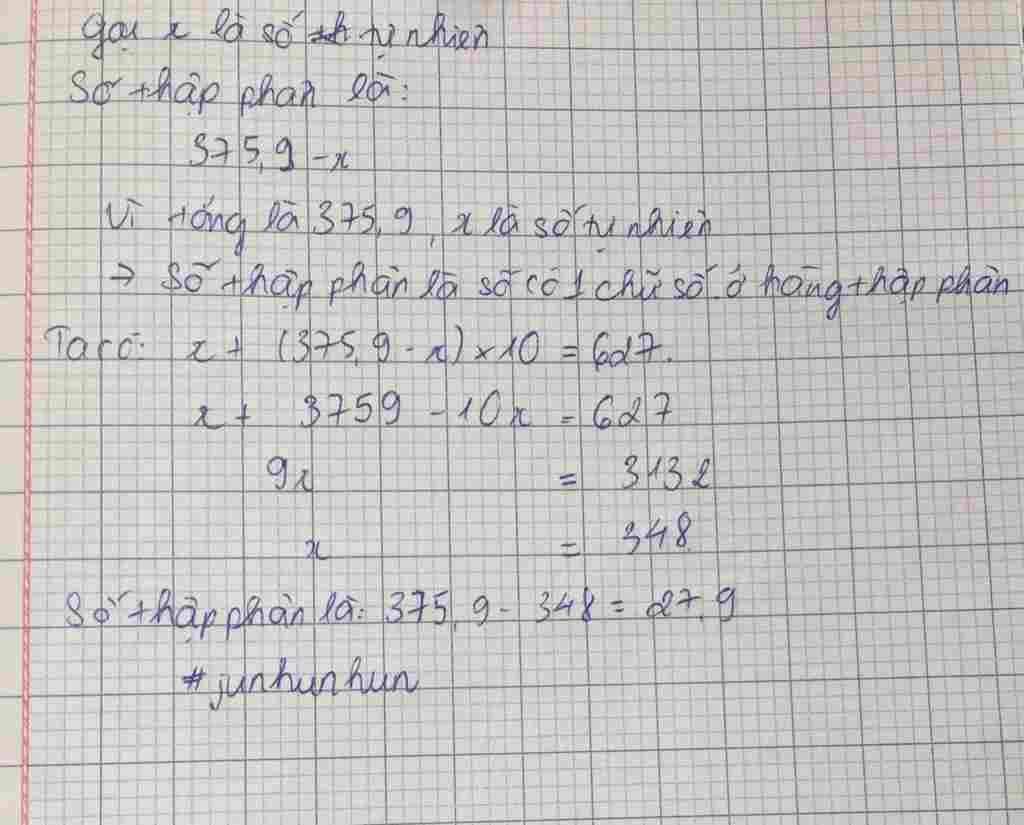 Gọi x là số tự nhiên
Số thập phân là:
375,9 - x
Vì tổng là 375,9, x là số tự nhiên
→ Số thập phân là số có 1 chữ số ở hàng thập phân
Ta có: x + (375,9 - x) × 10 = 627.
x + 3759 - 10x = 627
9x = 3132
x = 348
Số thập phân là: 375,9 - 348 = 27,9
#junhunhun